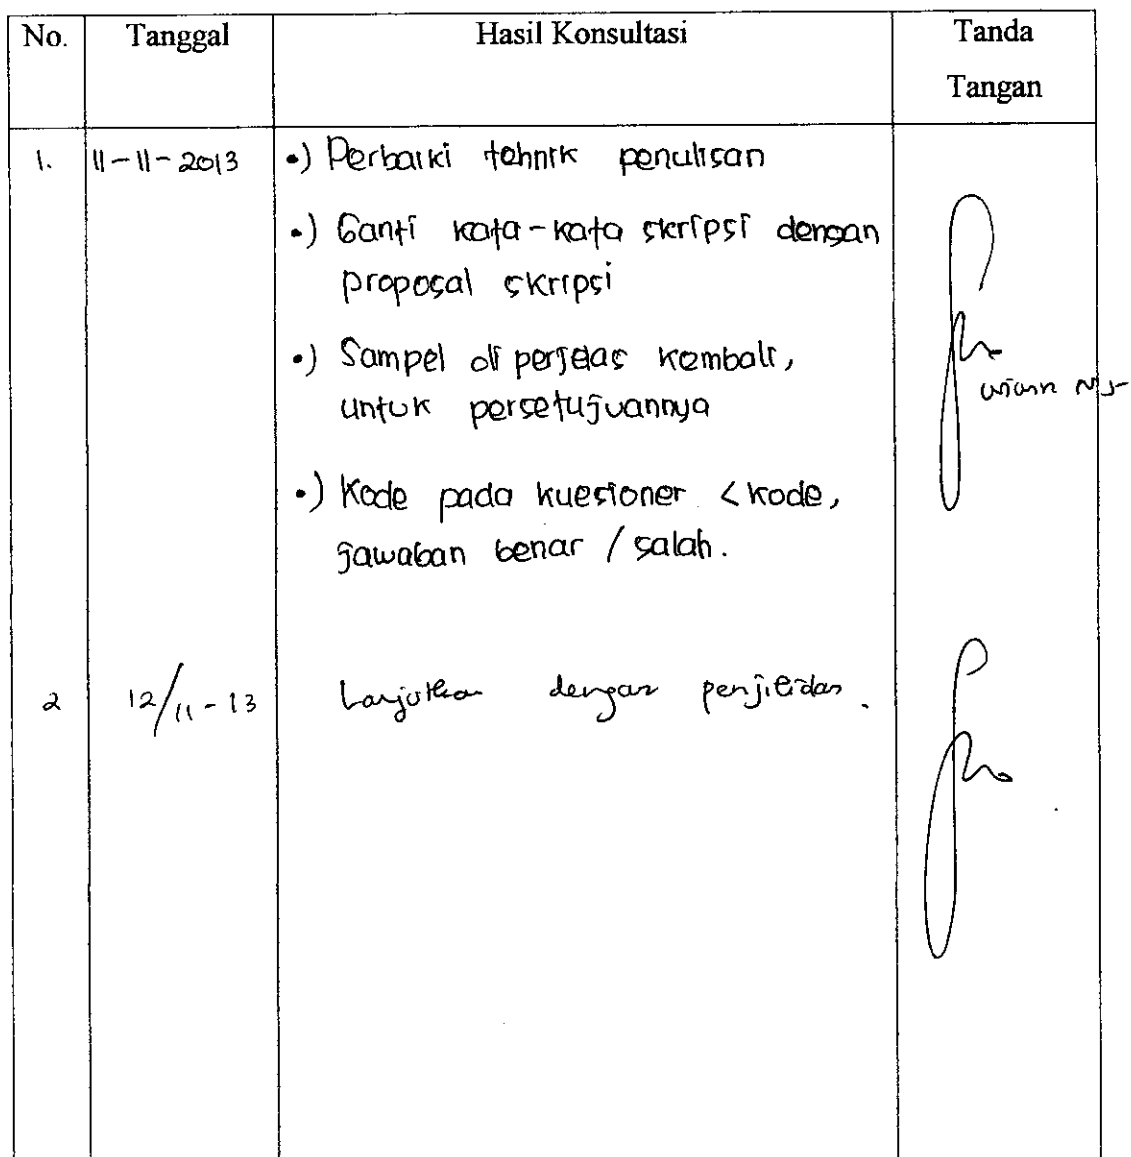 No. Tanggal Hasil Konsultasi Tanda
Tangan
1. 11-11-2013 •) Perbaiki tehnik penulisan
•) Ganti kata-kata skripsi dengan
proposal skripsi
•) Sampel di perjelas kembali,
untuk persetujuannya
•) Kode pada kuesioner < kode,
jawaban benar / salah.
2 12/11-13 Lanjutkan dengan penjilidan.